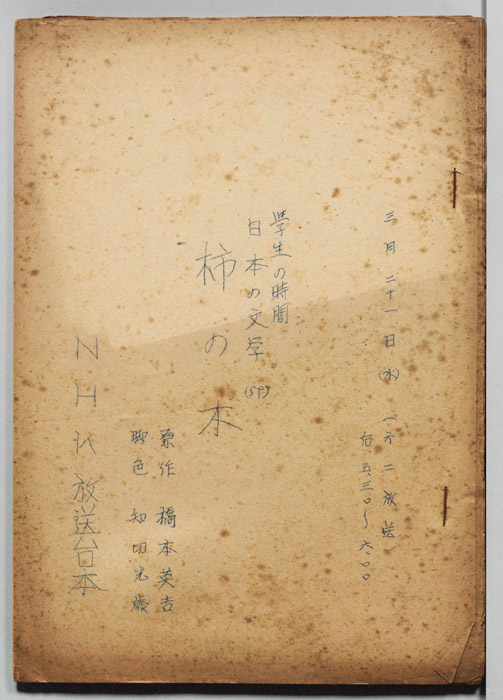 三月二十一日(水)(才二放送)
后、五、三〇〜六、〇〇
學生の時間
日本の文学(59)
柿の木
原作 橋本英吉
脚色 知切光歳
NHK放送台本